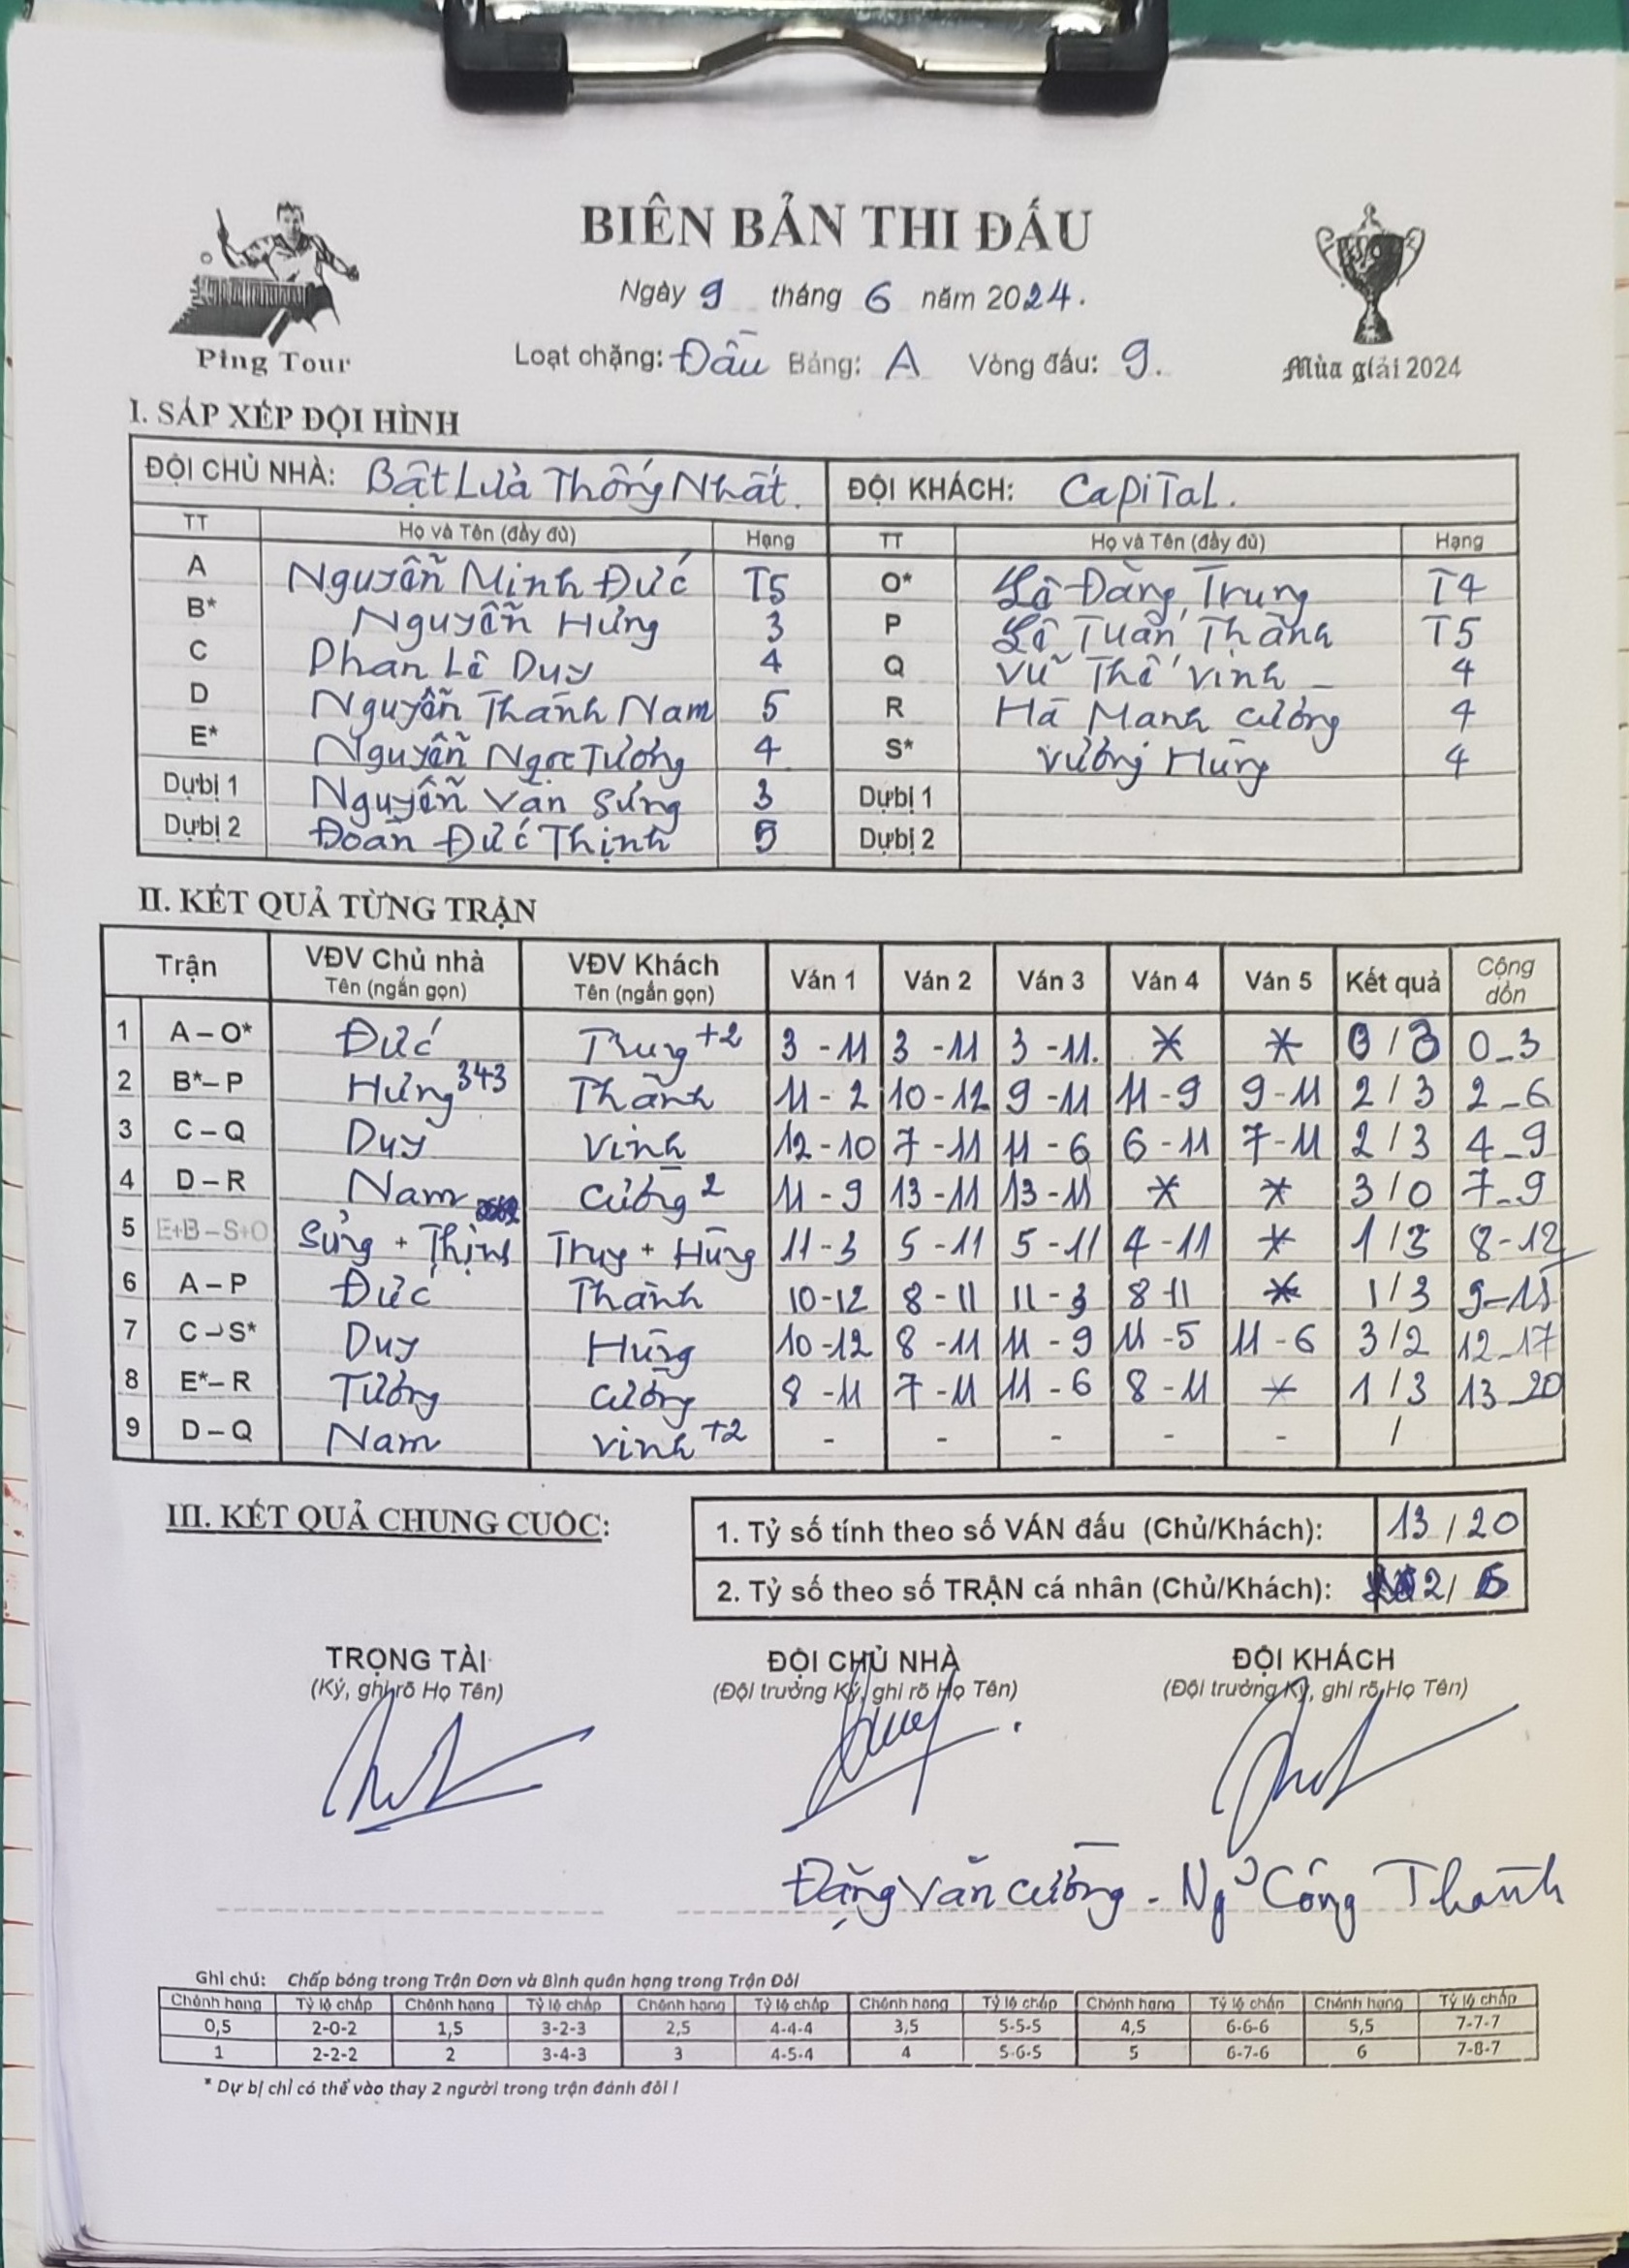 BIÊN BẢN THI ĐẤU
Ngày 9 tháng 6 năm 2024.
Loạt chặng: Đầu Bảng: A Vòng đấu: 9.
Ping Tour
Mùa giải 2024
I. SẮP XẾP ĐỘI HÌNH
ĐỘI CHỦ NHÀ: Bật Lửa Thống Nhất. ĐỘI KHÁCH: CapiTaL.
TT Họ và Tên (đầy đủ) Hạng TT Họ và Tên (đầy đủ) Hạng
A Nguyễn Minh Đức T5 O* Lê Đăng Trung T4
B* Nguyễn Hưng 3 P Lê Tuấn Thành T5
C Phan Lê Duy 4 Q Vũ Thế Vinh 4
D Nguyễn Thành Nam 5 R Hà Mạnh Cường 4
E* Nguyễn Ngọc Tường 4 S* Vương Hùng 4
Dự bị 1 Nguyễn Văn Sửng 3 Dự bị 1
Dự bị 2 Đoàn Đức Thịnh 5 Dự bị 2
II. KẾT QUẢ TỪNG TRẬN
Trận VĐV Chủ nhà Tên (ngắn gọn) VĐV Khách Tên (ngắn gọn) Ván 1 Ván 2 Ván 3 Ván 4 Ván 5 Kết quả Cộng dồn
1 A – O* Đức Trung +2 3 - 11 3 - 11 3 - 11. * * 0 / 3 0 - 3
2 B* – P Hưng 343 Thành 11 - 2 10 - 12 9 - 11 11 - 9 9 - 11 2 / 3 2 - 6
3 C – Q Duy Vinh 12 - 10 7 - 11 11 - 6 6 - 11 7 - 11 2 / 3 4 - 9
4 D – R Nam Cường 2 11 - 9 13 - 11 13 - 11 * * 3 / 0 7 - 9
5 E+B – S+O Sửng + Thịnh Trung + Hùng 11 - 3 5 - 11 5 - 11 4 - 11 * 1 / 3 8 - 12
6 A – P Đức Thành 10 - 12 8 - 11 11 - 3 8 - 11 * 1 / 3 9 - 15
7 C – S* Duy Hùng 10 - 12 8 - 11 11 - 9 11 - 5 11 - 6 3 / 2 12 - 17
8 E* – R Tường Cường 8 - 11 7 - 11 11 - 6 8 - 11 * 1 / 3 13 - 20
9 D – Q Nam Vinh +2 - - - - - /
III. KẾT QUẢ CHUNG CUỘC:
1. Tỷ số tính theo số VÁN đấu (Chủ/Khách): 13 / 20
2. Tỷ số theo số TRẬN cá nhân (Chủ/Khách): 2 /
TRỌNG TÀI ĐỘI CHỦ NHÀ ĐỘI KHÁCH
(Ký, ghi rõ Họ Tên) (Đội trưởng Ký, ghi rõ Họ Tên) (Đội trưởng Ký, ghi rõ Họ Tên)
Đặng Văn Cường - Ng Công Thành
Ghi chú: Chấp bóng trong Trận Đơn và Bình quân hạng trong Trận Đôi
Chênh hạng Tỷ lệ chấp Chênh hạng Tỷ lệ chấp Chênh hạng Tỷ lệ chấp Chênh hạng Tỷ lệ chấp Chênh hạng Tỷ lệ chấp Chênh hạng Tỷ lệ chấp
0,5 2-0-2 1,5 3-2-3 2,5 4-4-4 3,5 5-5-5 4,5 6-6-6 5,5 7-7-7
1 2-2-2 2 3-4-3 3 4-5-4 4 5-6-5 5 6-7-6 6 7-8-7
* Dự bị chỉ có thể vào thay 2 người trong trận đánh đôi !